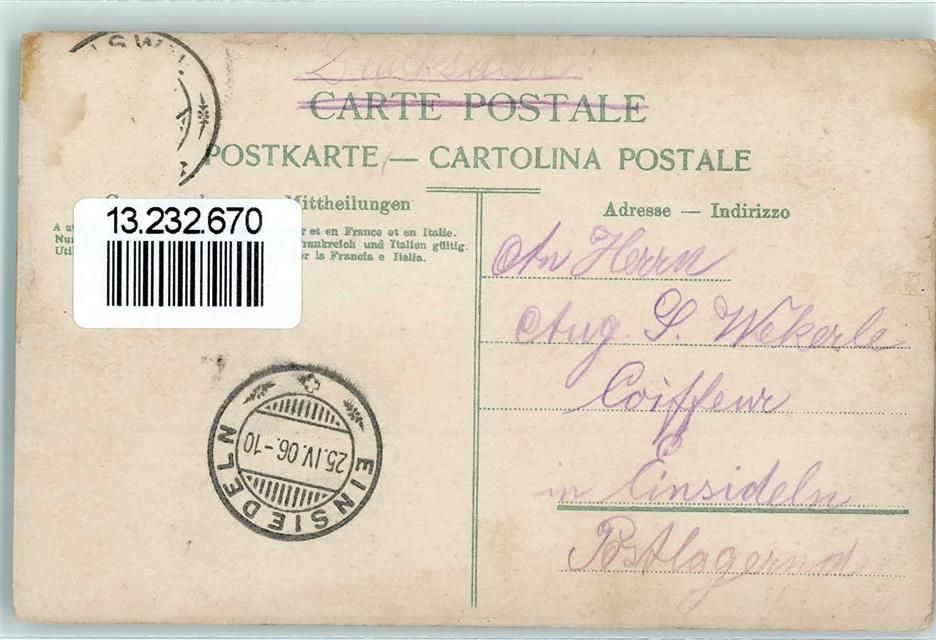 Drucksache
CARTE POSTALE
POSTKARTE — CARTOLINA POSTALE
Mittheilungen
et en France et en Italie.
Frankreich und Italien gültig.
la Francia e Italia.
13.232.670
Adresse — Indirizzo
An Herrn
Aug. S. Wekerle
Coiffeur
in Einsideln
Postlagernd
EINSIEDELN
25.IV.06.-10